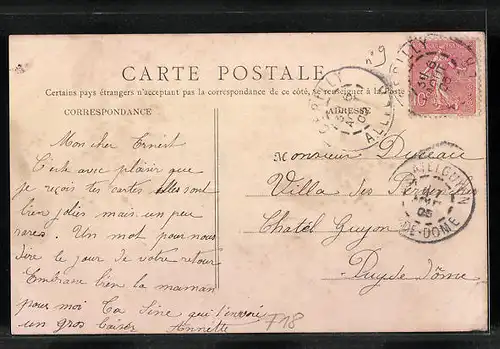 n° 9
CARTE POSTALE
Certains pays étrangers n'acceptant pas la correspondance de ce côté, se renseigner à la Poste
CORRESPONDANCE
ADRESSE
Mon cher Ernest
C'est avec plaisir que
je reçois tes cartes elles sont
bien jolies mais un peu
rares. Un mot pour nous
dire le jour de votre retour
Embrasse bien ta maman
pour moi Ta Sine qui t'envoie
un gros baiser Annette
Monsieur
Villa des
Chatel Guyon
Puy de Dôme
ALLIER
05
DE-DOME
10
F18